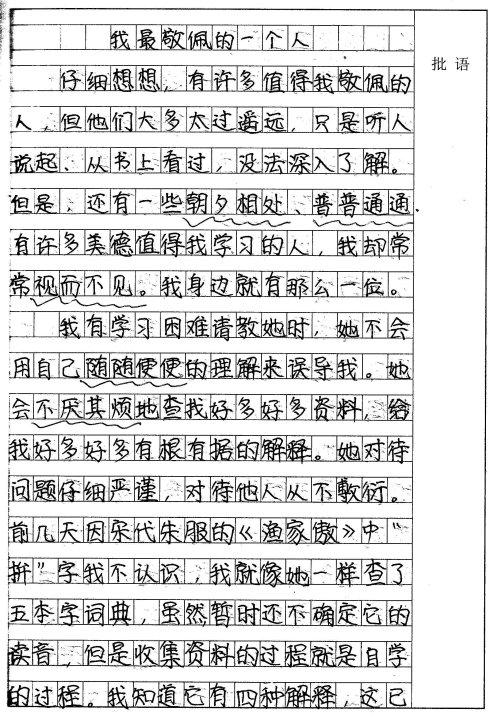 我最敬佩的一个人
批语
仔细想想，有许多值得我敬佩的
人，但他们大多太过遥远，只是听人
说起、从书上看过，没法深入了解。
但是，还有一些朝夕相处、普普通通、
有许多美德值得我学习的人，我却常
常视而不见。我身边就有那么一位。
我有学习困难请教她时，她不会
用自己随随便便的理解来误导我。她
会不厌其烦地查找好多好多资料，给
我好多好多有根有据的解释。她对待
问题仔细严谨，对待他人从不敷衍。
前几天因宋代朱服的《渔家傲》中“
拚”字我不认识，我就像她一样查了
五本字词典，虽然暂时还不确定它的
读音，但是收集资料的过程就是自学
的过程。我知道它有四种解释，这已